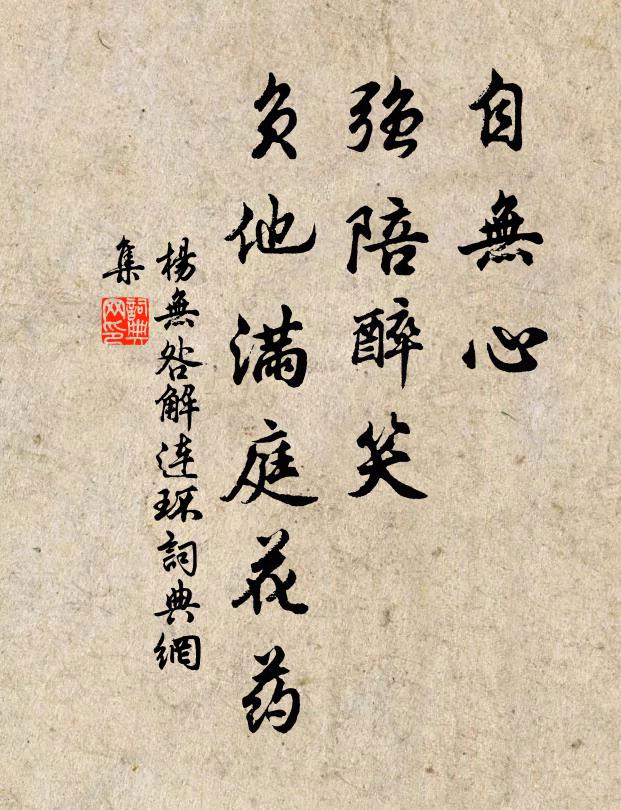 自無心
強陪醉笑
負他滿庭花药
楊無咎解連環詞典網
集
詞典网印